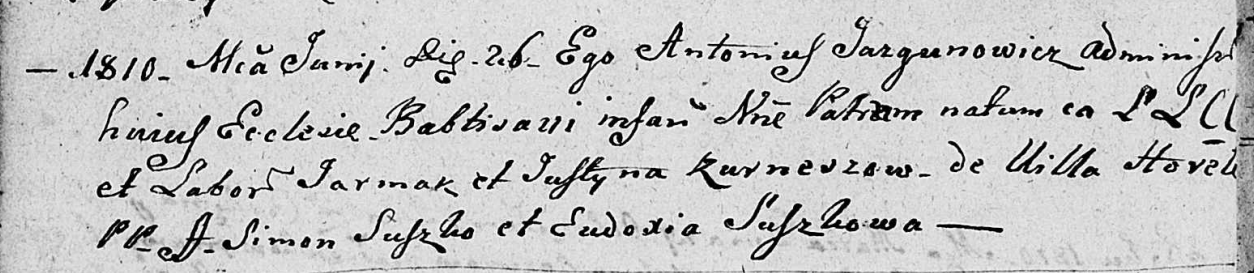 — 1810. Mca Junij. Die. 26. Ego Antonius Jazgunowicz administ
huius Ecclesie Babtisavi infan̄ Nnē Patram natum ea LLCC
et Labor Jarmak et Justyna Kurneszow. de Villa Horel
PP. A. Simon Suszko et Eudoxia Suszkowa —